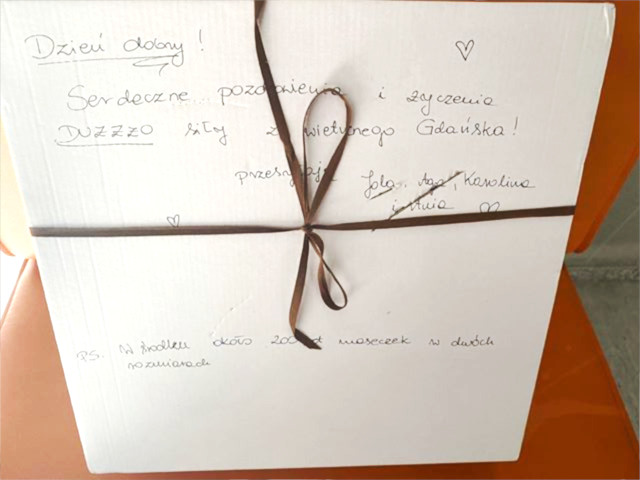 Dzień dobry!
Serdeczne pozdrowienia i życzenia
DUŻŻŻO siły z wietrznego Gdańska!
przesyłają Jola, Aga, Karolina
i Ania
PS. W środku około 200 maseczek w dwóch
rozmiarach